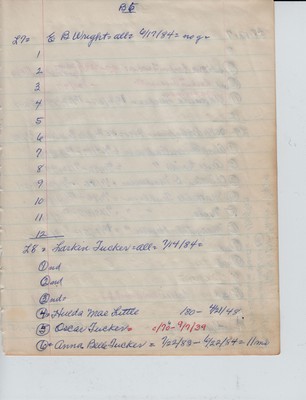 B5
L7= E B Wright= all= 6/17/84= no g=
1
2
3
4
5
6
7
8
9
10
11
12
L8= Larken Tucker= all= 7/14/84=
① nd
② nd
③ nd+
④= Hulda Mae Little 180- 4/21/48
⑤ Oscar Tucker= 9/7/39
⑥+ Anna Belle Tucker = 7/22/83- 6/22/84= 11 mo